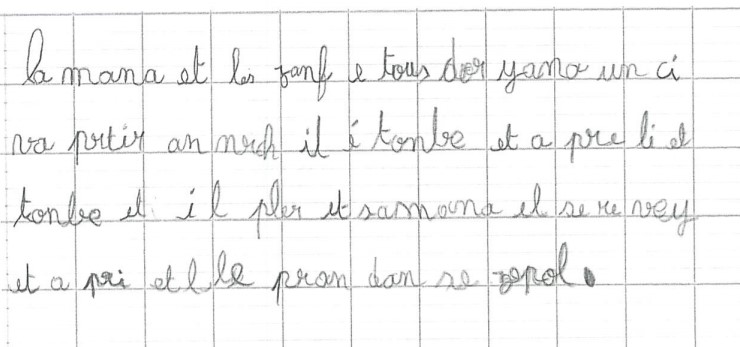 la mana et les zanf e tous dor yana un ci
va prtir an mrch il é tonbe et a pre li et
tonbe et il pler et samana el se re vey
et a pri el le pran dan se epol.